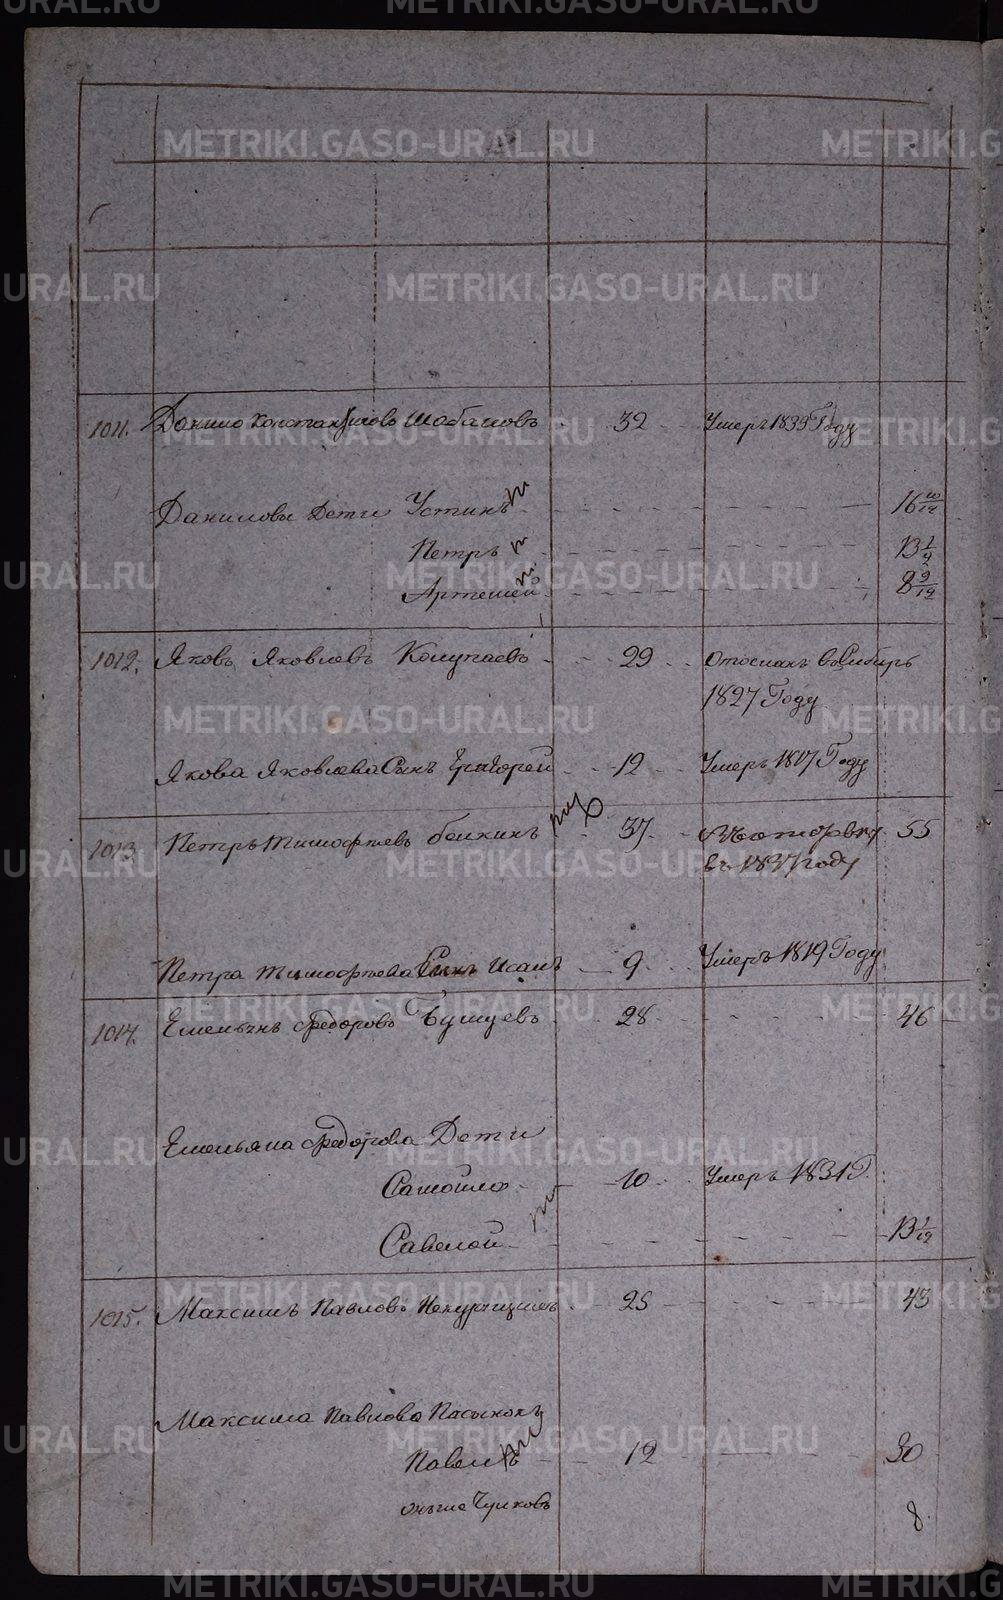 1011. Данило Константиновъ Шабаловъ 32 Умеръ 1835 Году
Даниловы Дети Устинъ 16 10/12
Петръ 13 1/2
Артемей 8 9/12
1012. Яковъ Яковлевъ Колупаевъ 29 Отосланъ в Сибирь
1827 Году
Якова Яковлева Сынъ Григорей 12 Умеръ 1817 Году
1013 Петръ Тимофеевъ 37 55
въ 1837 году
Петра Тимофеева Сынъ Исакъ 9 Умеръ 1819 Году
1014. Емельянъ Федоровъ 28 46
Емельяна Федорова Дети
Самойло 10 Умеръ 1831 Г.
Савелой 13 1/12
1015. Максимъ Павловъ 25 43
Максима Павлова Пасынокъ
Павелъ 12 30
8.
METRIKI.GASO-URAL.RU